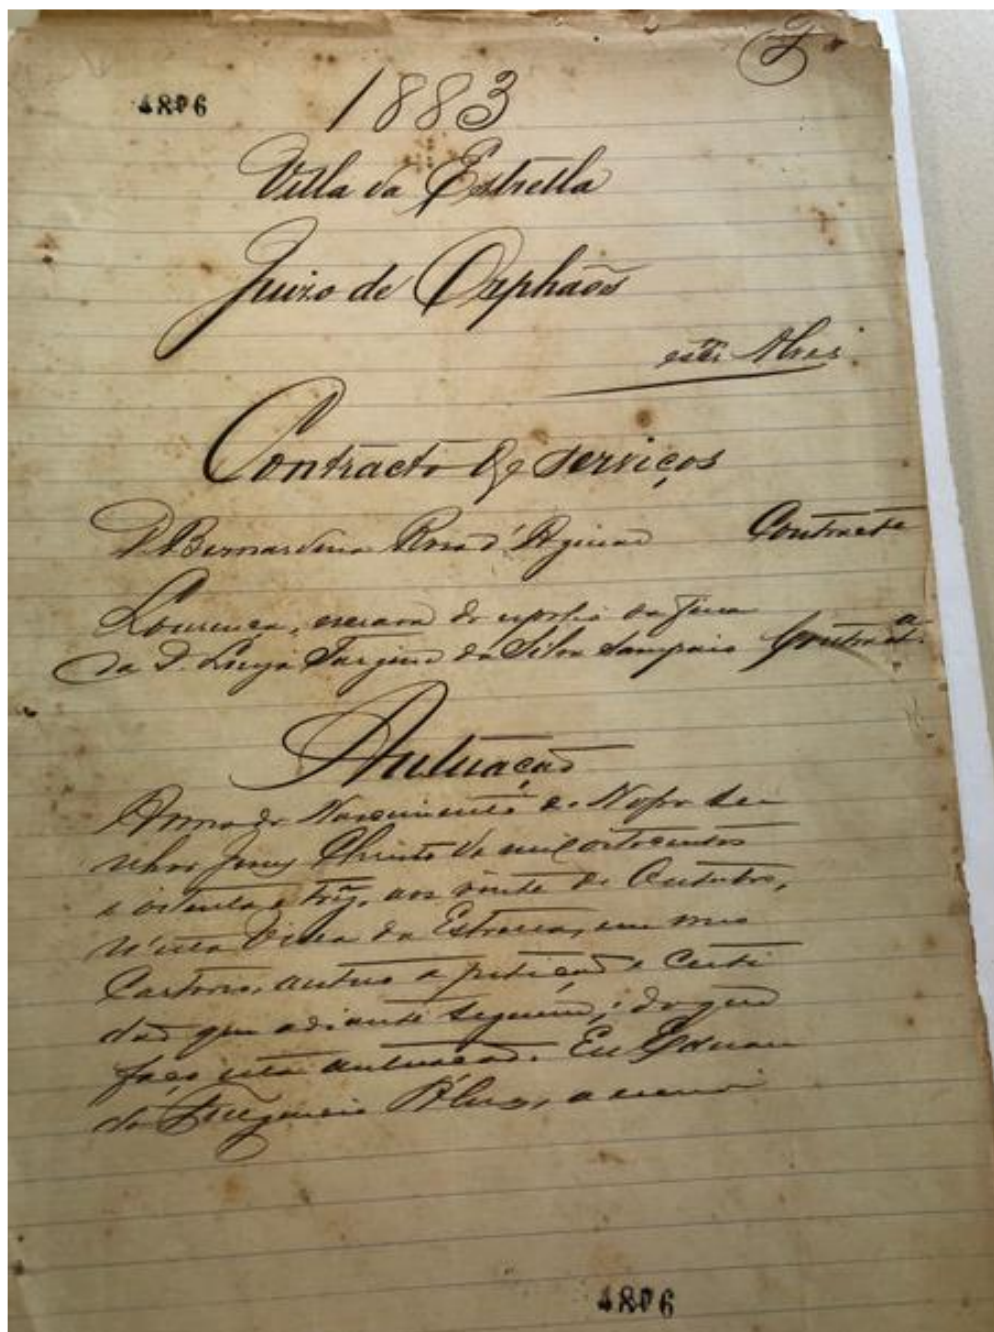 4806
1883
Villa da Estrella
Juizo de Orphãos
Alves
Contracto de serviços
D. Bernardina Rosa d'Aguiar Contracte
Lourença, escrava do espolio da fina
da D. Luiza da Silva Sampaio Contract.ª
Autuação
Anno do Nascimento de Nosso Se
nhor Jesus Christo de mil oitocentos
e oitenta e tres, aos vinte de Outubro,
n'esta Villa da Estrella, em meu
Cartorio, autuo a petição e Certi
dão que adiante seguem; do que
faço esta autuação. Eu
Alves, o escrevi
4806